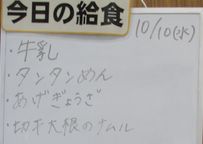 今日の給食
10/10(水)
・牛乳
・タンタンめん
・あげぎょうざ
・切干大根のナムル